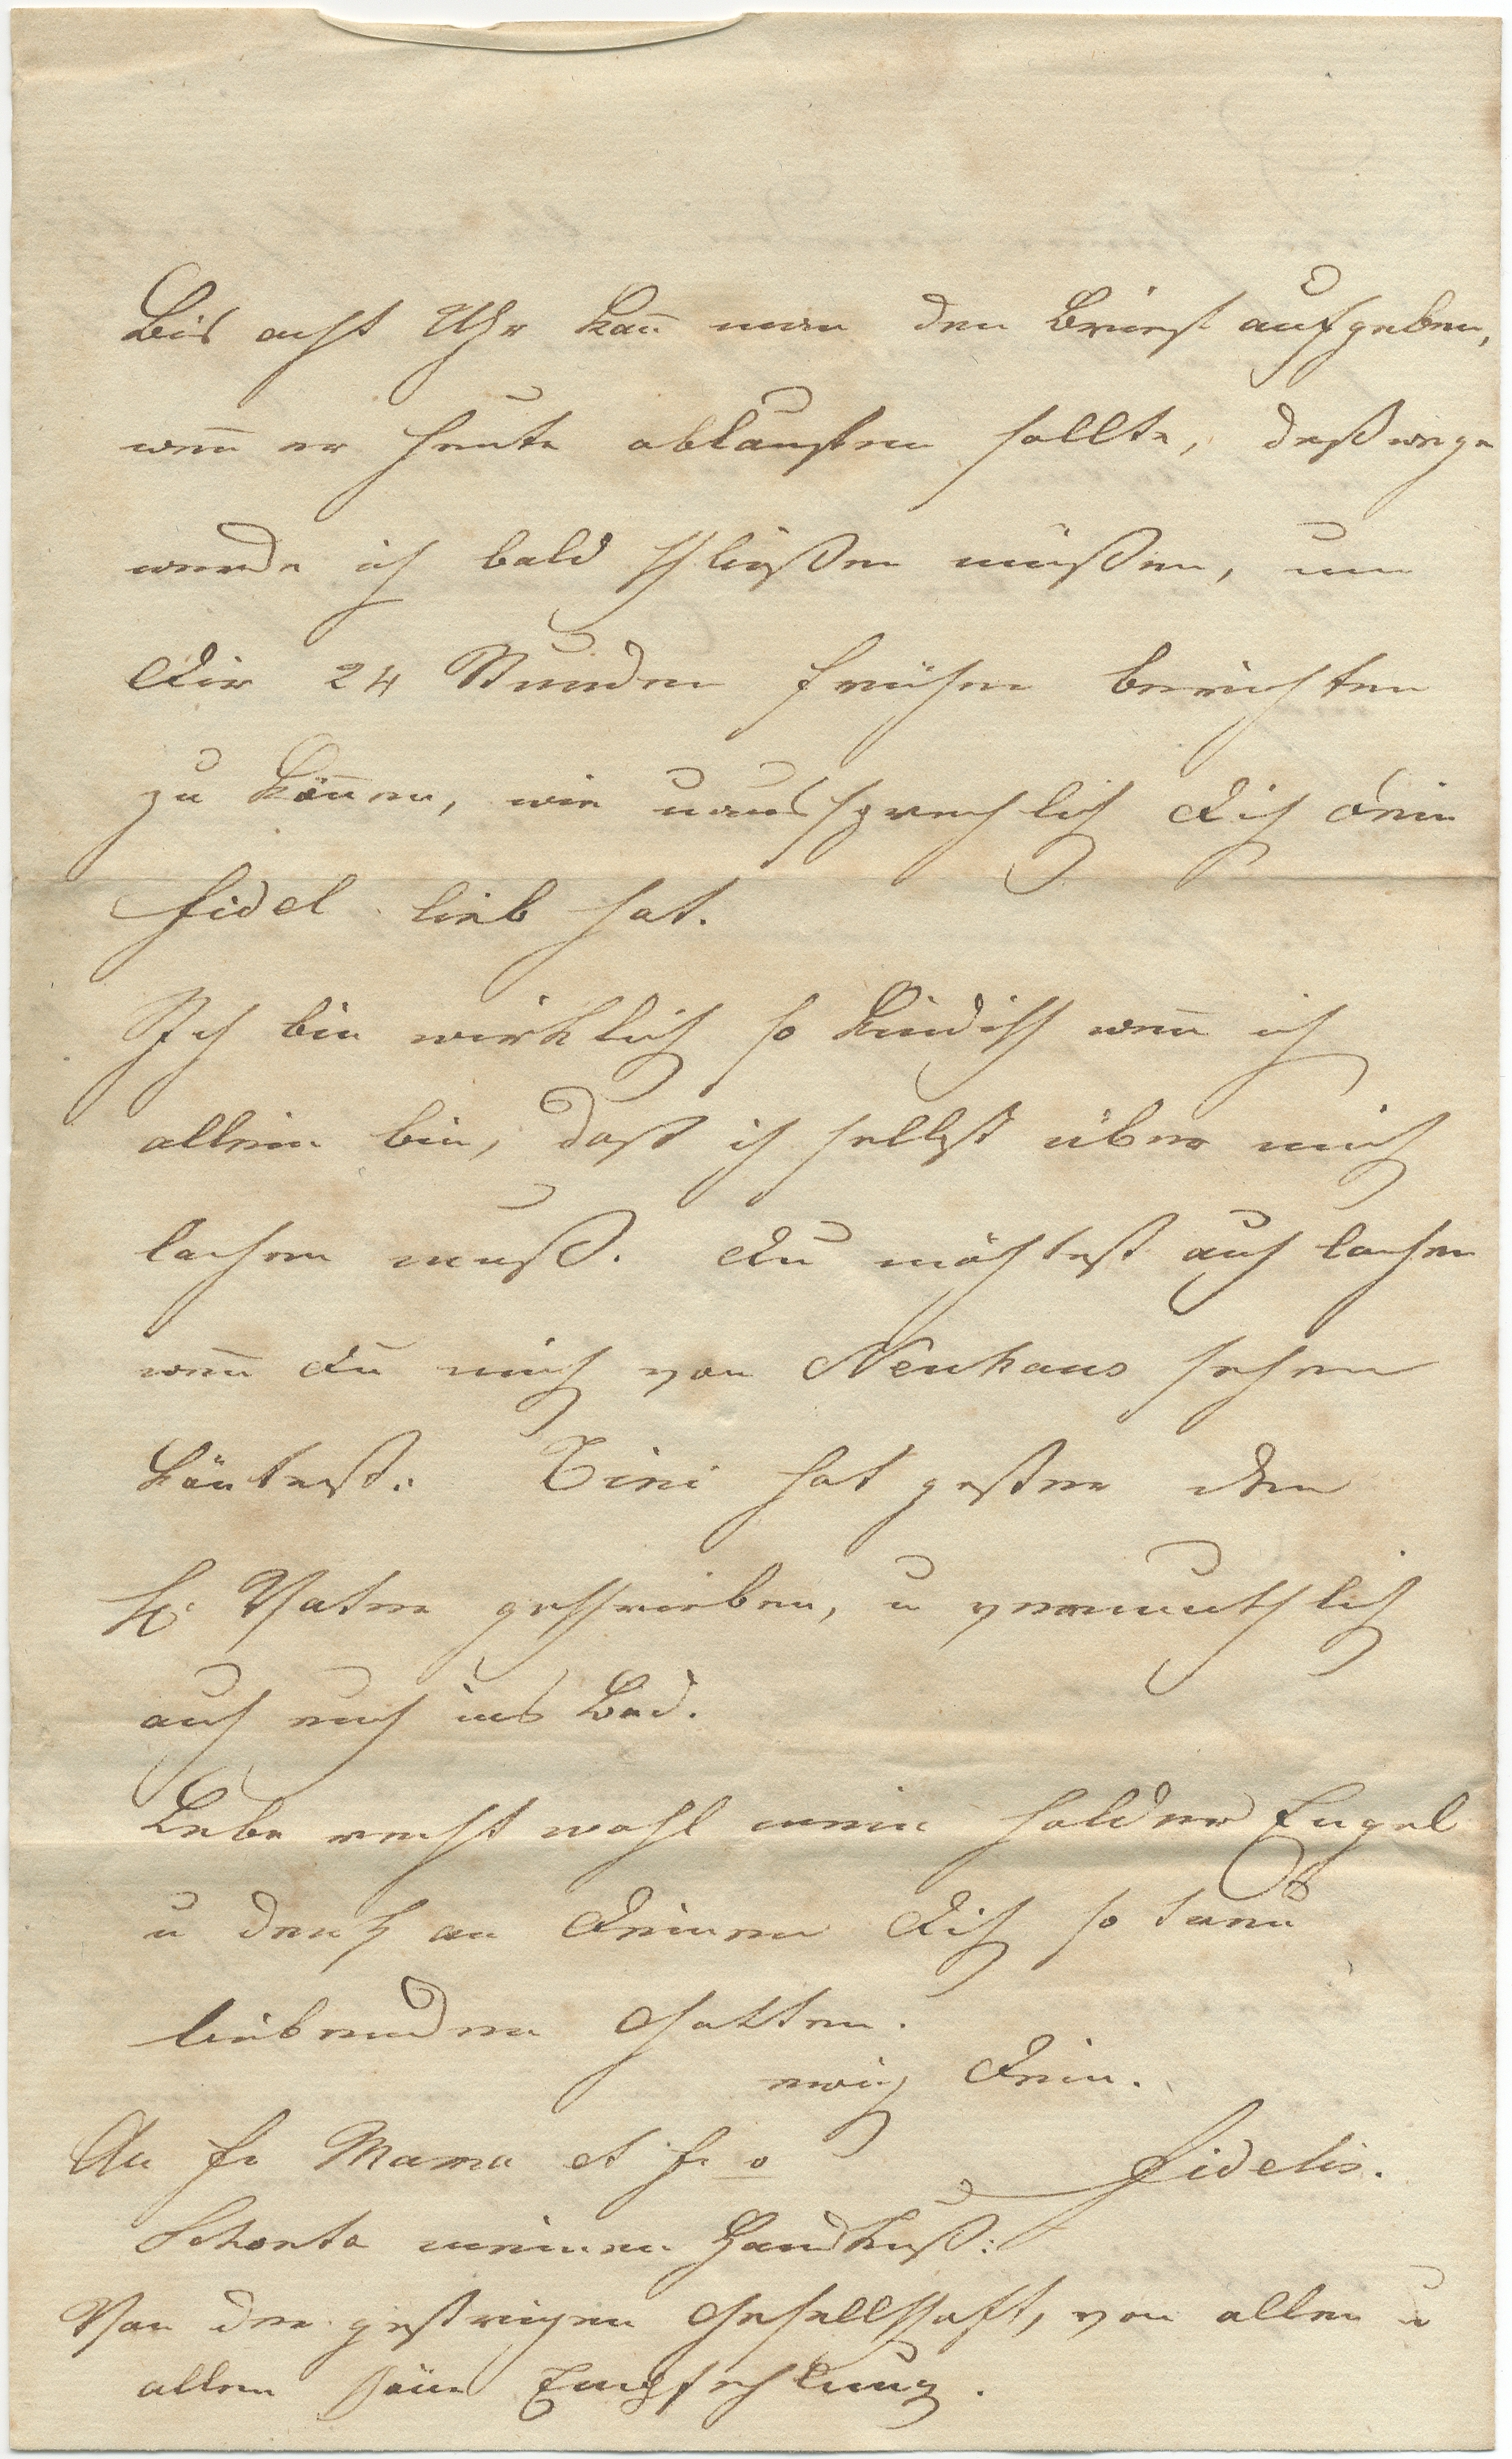 Bis acht Uhr kan̄ man den Brief aufgeben,
wen̄ er heute ablaufen sollte, deßwege
werde ich bald schließen müßen, um
Dir 24 Stunden früher berichten
zu kön̄en, wie unaussprechlich Dich Dein
Fidel lieb hat.
Ich bin wirklich so kindisch wen̄ ich
allein bin, daß ich selbst über mich
lachen muß. Du möchtest auch lachen
wen̄ Du mich von Neuhaus sehen
köntest. Tini hat gestern dem
H: Vater geschrieben, u vermuthlich
auch euch ins Bad.
Lebe recht wohl mein holder Engel
u denk an Deinen Dich so treu
liebenden Gatten.
ewig Dein.
Fidelis.
An Fr Mama et Fr v
meinen Handkuß:
Von der gestrigen Gesellschaft, von allen u
allen schöne Empfehlung.